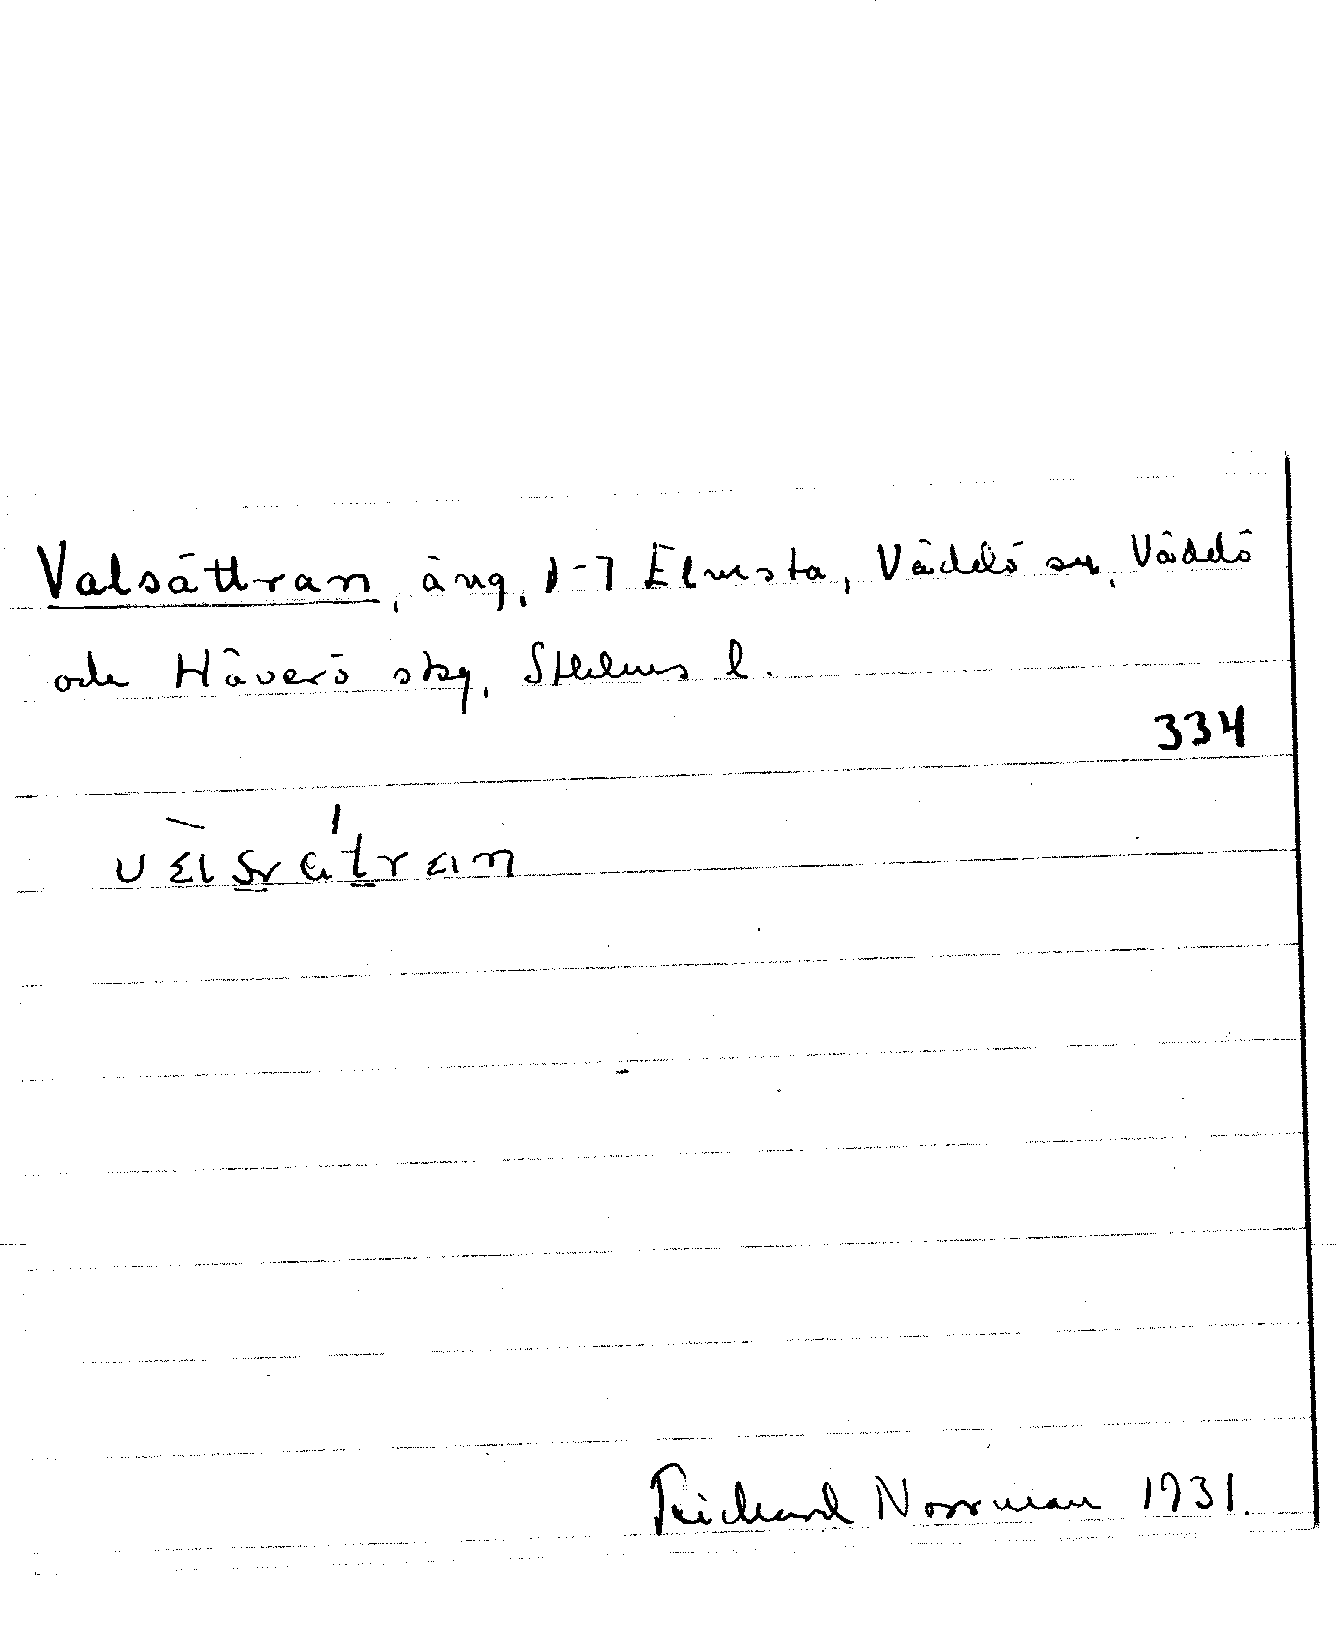 Valsättran, äng, 1-7 Elmsta, Väddö sn, Väddö
och Häverö skg, Sthlms l.
334
Richard Norrman 1931.